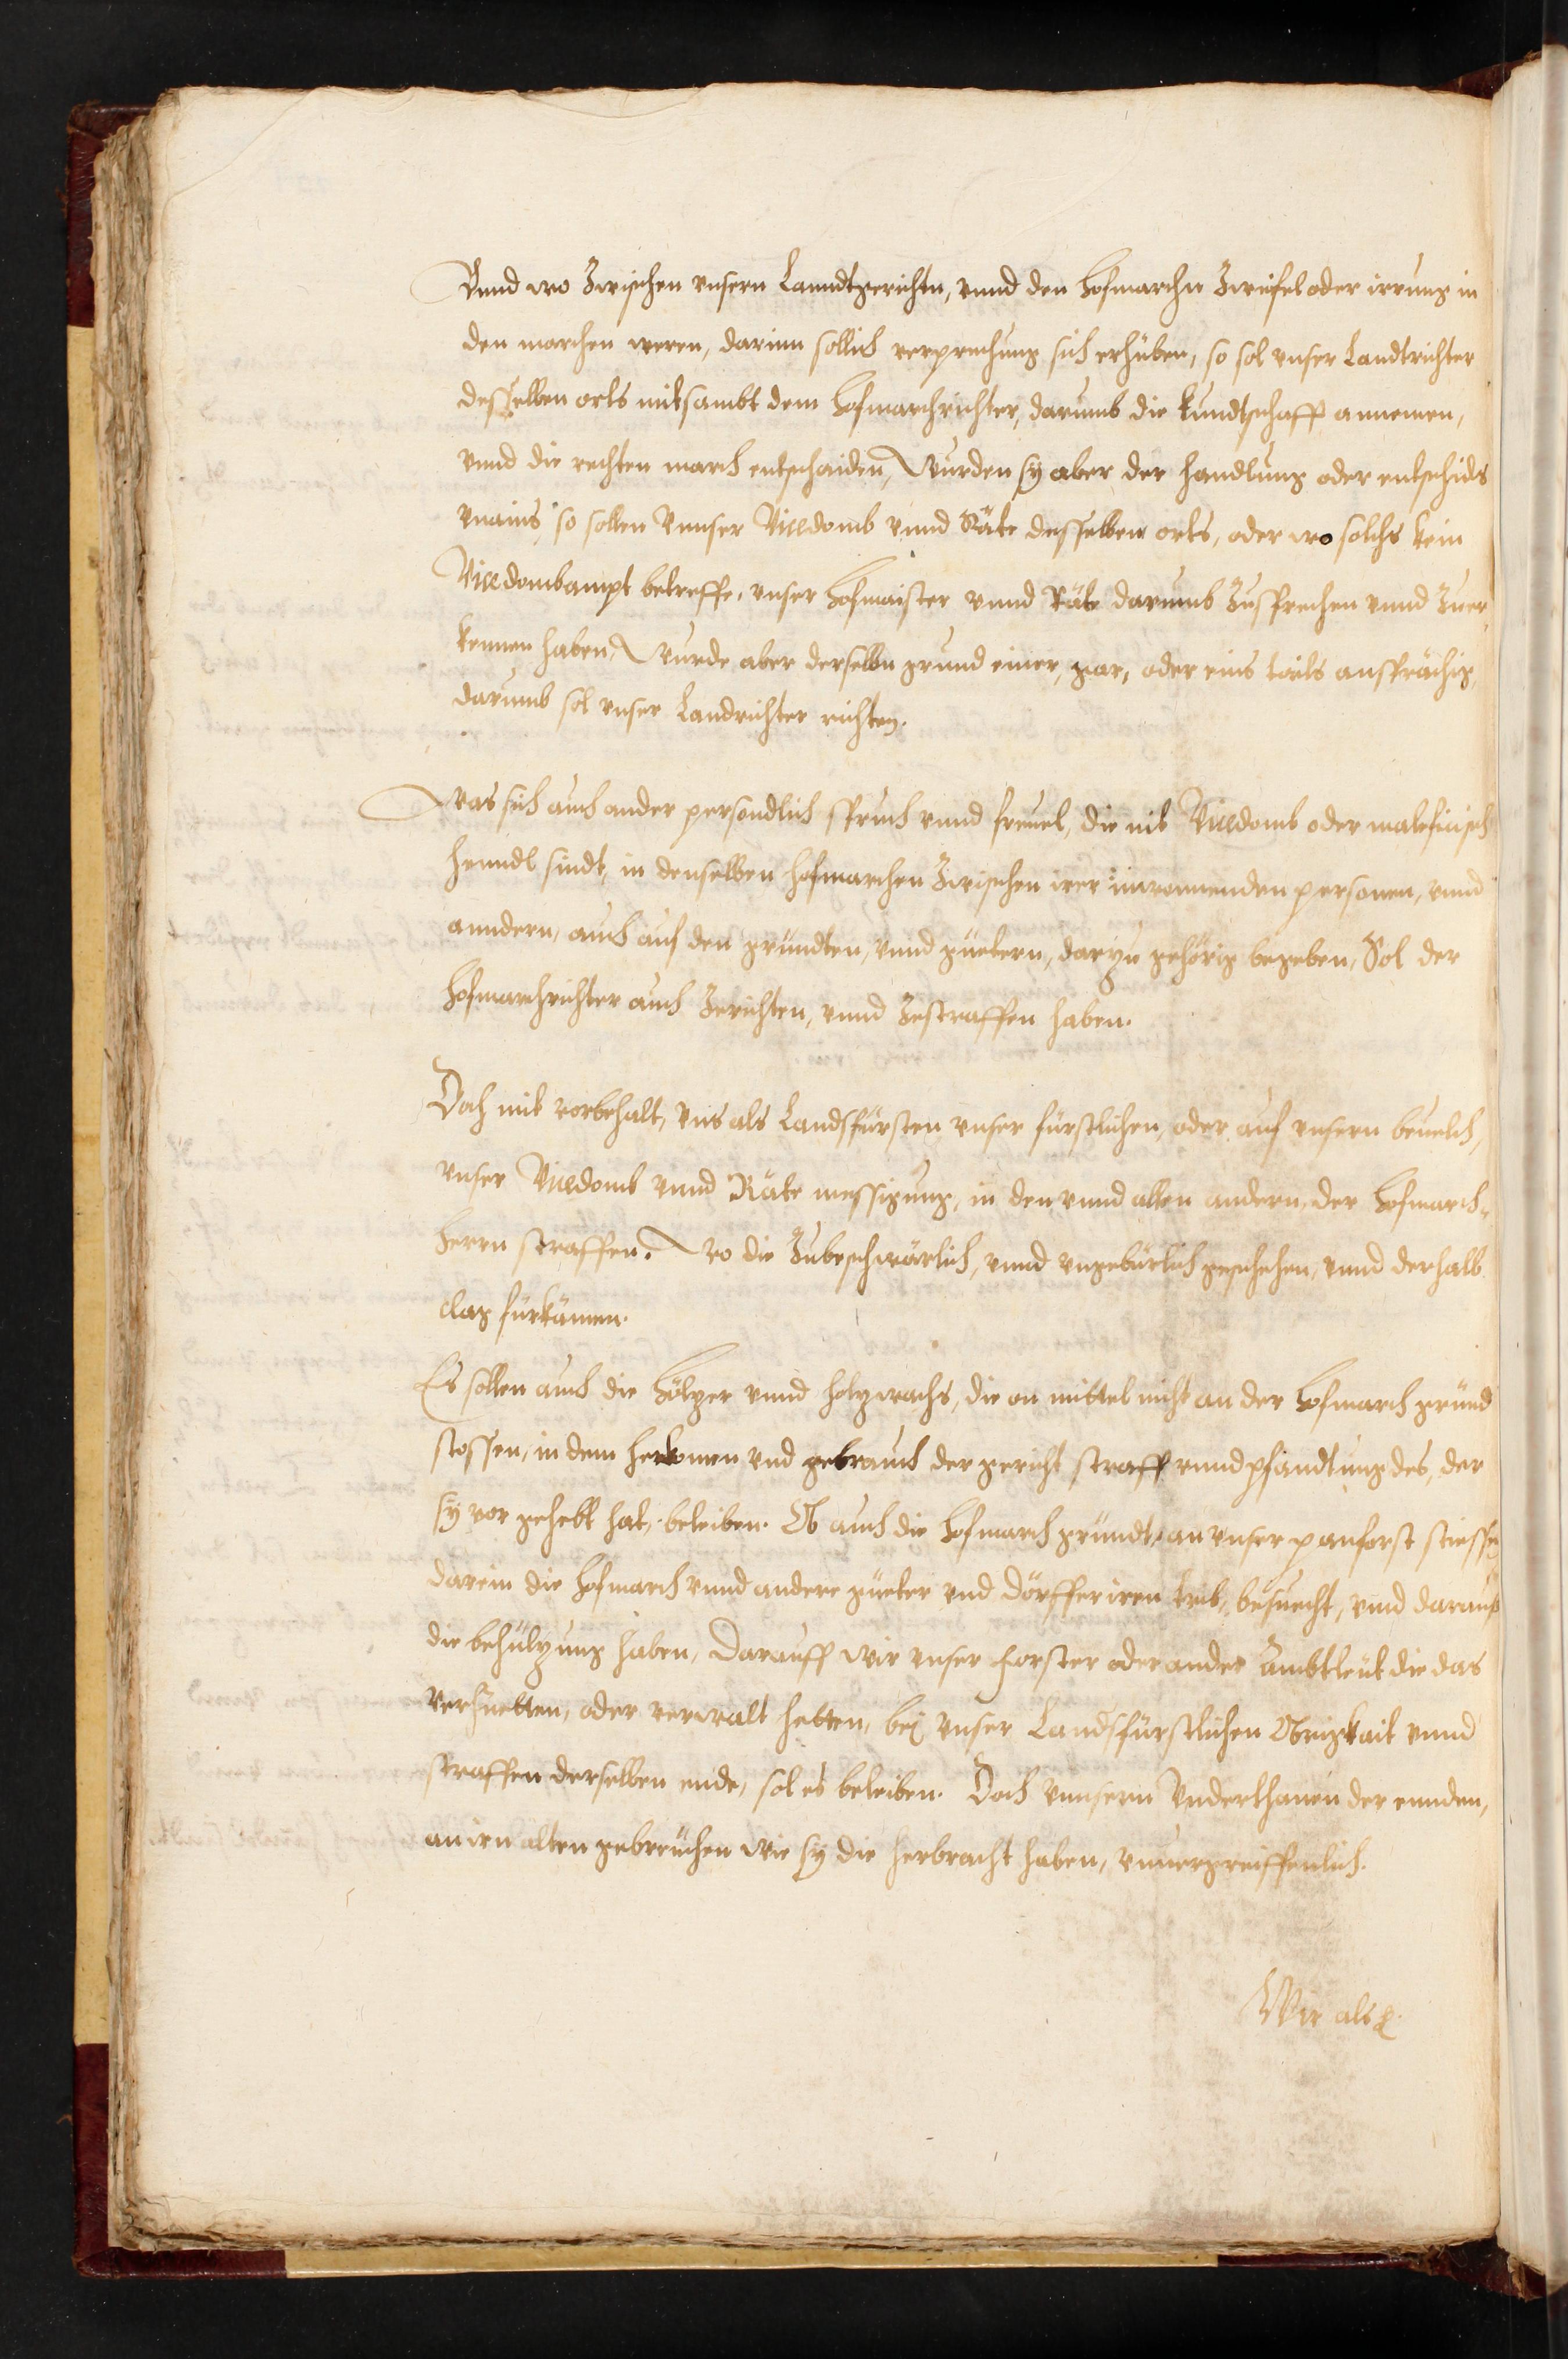 Vnnd wo Zwischen vnsern Lanndtgerichtn, vnnd den Hofmarchn Zweifel oder irrung in
den marchen weren, darinn sollich verprechung sich erhüben, so sol vnser Landtrichter
desselben orts mitsambt dem Hofmarchrichter, darumb die kundtschafft annemen,
vnnd die rechten march entschaiden, Wurden sy aber der handlung oder entschids
vnains so sollen Vnnser Vitzdomb vnnd Räte desselben orts, oder wo solchs kein
Vitzdombampt betreffe, vnser Hofmaister vnnd Räte darumb Zusprechen vnnd Zuer-
kennen haben, Wurde aber derselbn grund einer, gar, oder eins tails ansprächig,
darumb sol vnser Landrichter richten.
Was sich auch ander persondlich spruch vnnd freuel, die nit Vitzdomb oder maleficisch
henndl sindt, in denselben hofmarchen Zwischen irer inwonnenden personen, vnnd
anndern, auch auf den gründten, vnnd güetern, dartzu gehörig begeben, Sol der
Hofmarchrichter auch Zerichten, vnnd Zestraffen haben.
Doch mit vorbehalt, vns als Landsfürsten vnser fürstlichen, oder auf vnsern beuelch,
vnser Vitzdomb vnnd Räte messigung, in den vnnd allen andern, der Hofmarch-
herrn straffen. Wo die Zubeschwärlich, vnnd vngebürlich geschehen, vnnd derhalb
clag fürkämen.
Es sollen auch die Höltzer vnnd holtzwachs, die on mittel nicht an der Hofmarch gründ
stossen, in dem herkomen vnd gebrauch der gericht straff vnnd pfandtung des, der
sy vor gehebt hat, beleiben. Ob auch die Hofmarch gründt, an vnser panforst stiessen
darein die Hofmarch vnnd andere güeter vnd dörffer iren trib, besuecht, vnnd daraus
die behültzung haben, Darauff wir vnser Forster oder ander Ambtleut die das
verhuetten, oder verwalt hetten, bey vnser Landsfürstlichen Obrigkait vnnd
straffen derselben ende, sol es beleiben. Doch vnnsern Vnderthanen der ennden,
an irn alten gebreuchen wie sy die herbracht haben, vnuergreiffenlich.
Wir als